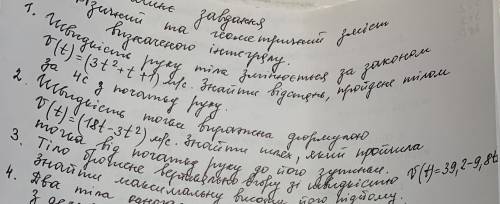 завдання
1. Фізичний та геометричний зміст
визначеного інтегралу.
Швидкість руху тіла змінюється за законом
v(t)=(3t²+t+1) м/с. Знайти відстань, пройдене тілом
за 4с з початку руху.
2. Швидкість точки виражена формулою
v(t)=(18t-3t²) м/с. Знайти шлях, який пройшла
точка від початку руху до його зупинки.
3. Тіло брошене вертикально вгору зі швидкістю v(t)=39,2-9,8t
Знайти максимальну висоту його підйому.
4. Два тіла